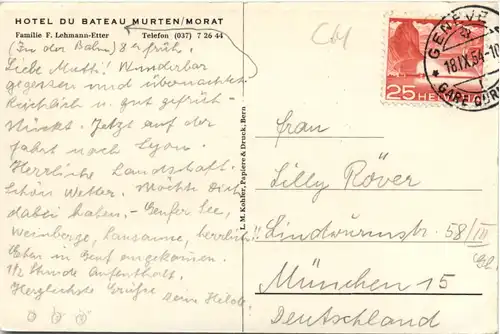 HOTEL DU BATEAU MURTEN/MORAT
Familie F. Lehmann-Etter Telefon (037) 7 26 44
(In der Bahn) 8 er früh.
Liebe Mutti! Wunderbar
gegessen und übernachtet.
Reichlich u. gut gefrüh-
stückt. Jetzt auf der
Fahrt nach Lyon.
Herrliche Landschaft.
Schön Wetter. Möchte Dich
dabei haben. - Genfer See,
Weinberge, Lausanne, herrlich!!
Eben in Genf angekommen.
1/2 Stunde Aufenthalt.
Herzlichste Grüße
Deine Hilde
L. M. Kohler, Papiere & Druck, Bern
25 HELVETIA
GENÈVE
18.IX.54-10
GARE CORN
Frau
Lilly Röver
Lindwurmstr. 58/III
München 15
Deutschland